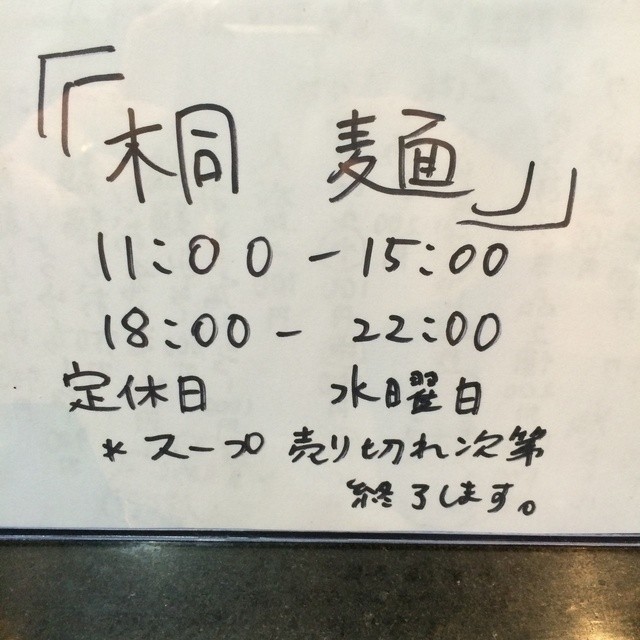 『桐 麺』
11:00 - 15:00
18:00 - 22:00
定休日 水曜日
* スープ 売り切れ次第
終了します。